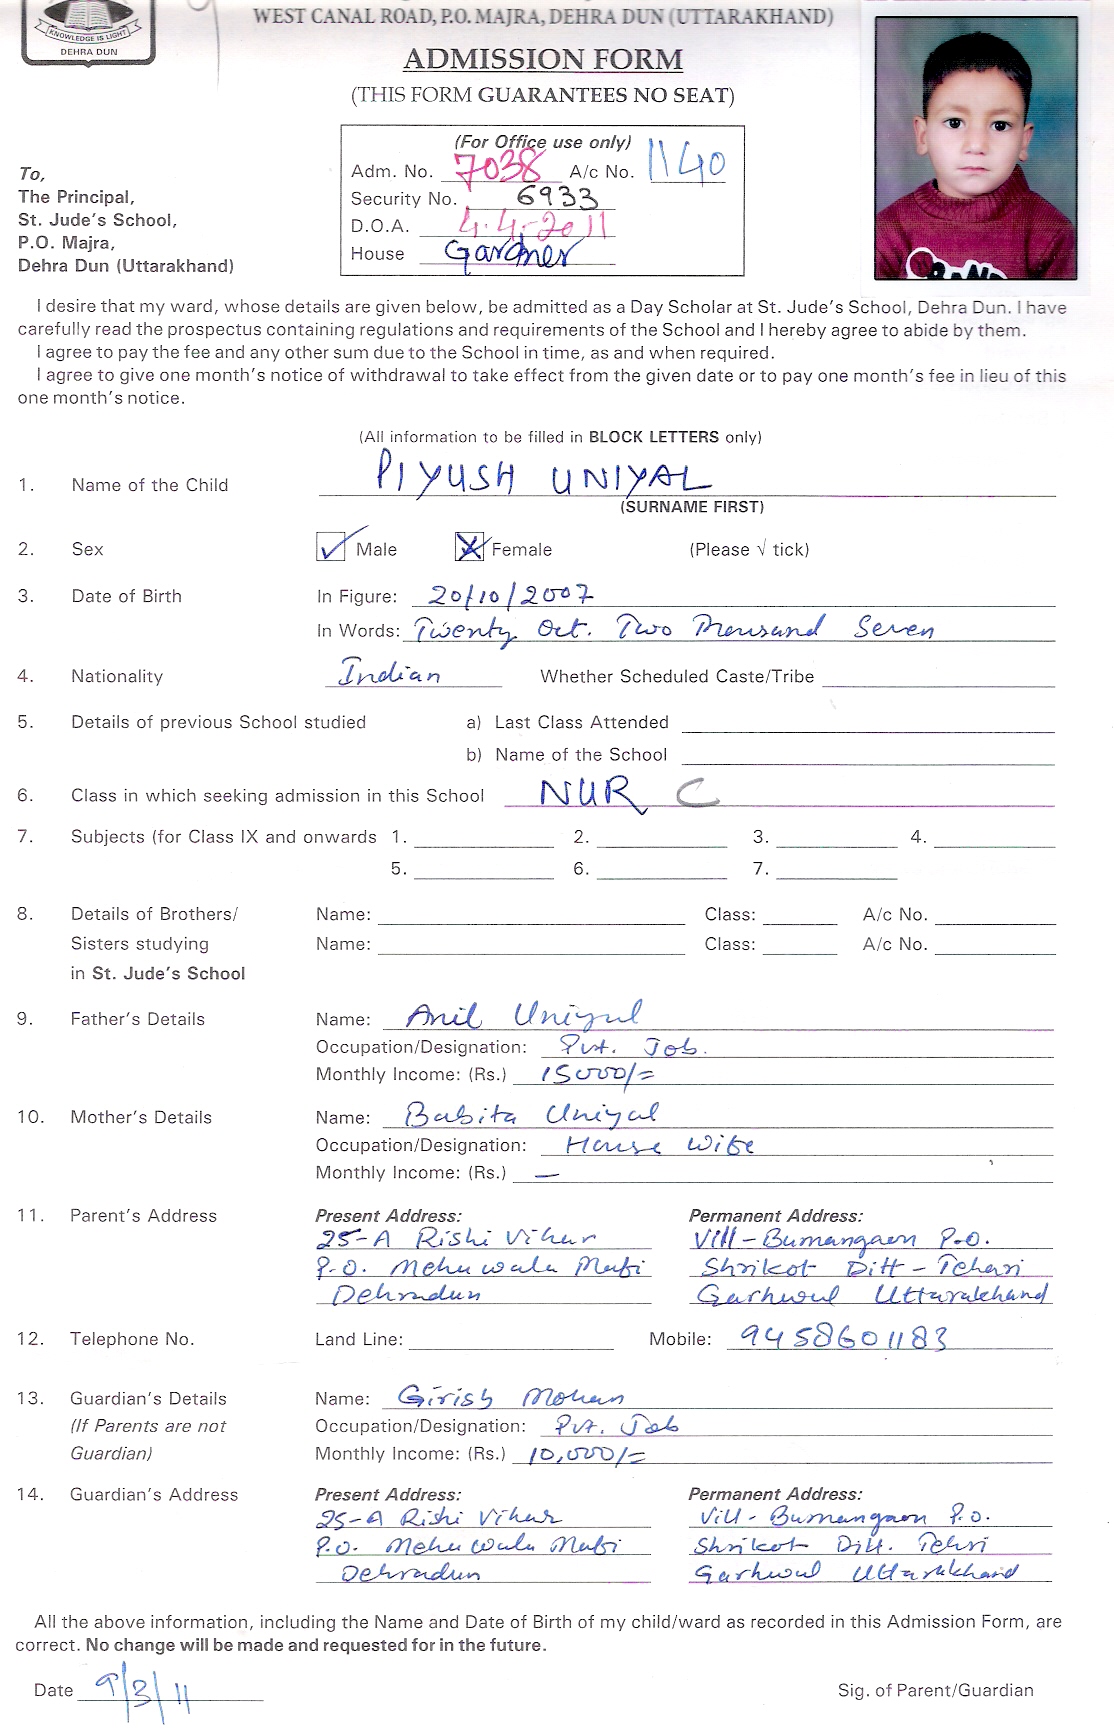 KNOWLEDGE IS LIGHT
DEHRA DUN
WEST CANAL ROAD, P.O. MAJRA, DEHRA DUN (UTTARAKHAND)
ADMISSION FORM
(THIS FORM GUARANTEES NO SEAT)
(For Office use only)
Adm. No. 7038 A/c No. 1140
Security No. 6933
D.O.A. 4.4.2011
House Gardner
To,
The Principal,
St. Jude's School,
P.O. Majra,
Dehra Dun (Uttarakhand)
I desire that my ward, whose details are given below, be admitted as a Day Scholar at St. Jude's School, Dehra Dun. I have
carefully read the prospectus containing regulations and requirements of the School and I hereby agree to abide by them.
I agree to pay the fee and any other sum due to the School in time, as and when required.
I agree to give one month's notice of withdrawal to take effect from the given date or to pay one month's fee in lieu of this
one month's notice.
(All information to be filled in BLOCK LETTERS only)
1. Name of the Child PIYUSH UNIYAL
(SURNAME FIRST)
2. Sex Male Female (Please √ tick)
3. Date of Birth In Figure: 20/10/2007
In Words: Twenty Oct. Two Thousand Seven
4. Nationality Indian Whether Scheduled Caste/Tribe
5. Details of previous School studied a) Last Class Attended
b) Name of the School
6. Class in which seeking admission in this School NUR C
7. Subjects (for Class IX and onwards 1. 2. 3. 4.
5. 6. 7.
8. Details of Brothers/ Name: Class: A/c No.
Sisters studying Name: Class: A/c No.
in St. Jude's School
9. Father's Details Name: Anil Uniyal
Occupation/Designation: Pvt. Job.
Monthly Income: (Rs.) 15000/=
10. Mother's Details Name: Babita Uniyal
Occupation/Designation: House Wife
Monthly Income: (Rs.) —
11. Parent's Address Present Address: Permanent Address:
25-A Rishi Vihar Vill-Bumangaon P.O.
P.O. Mehuwala Mafi Shrikot Ditt-Tehari
Dehradun Garhwal Uttarakhand
12. Telephone No. Land Line: Mobile: 9458601183
13. Guardian's Details Name: Girish Mohan
(If Parents are not Occupation/Designation: Pvt. Job
Guardian) Monthly Income: (Rs.) 10,000/=
14. Guardian's Address Present Address: Permanent Address:
25-A Rishi Vihar Vill-Bumangaon P.O.
P.O. Mehuwala Mafi Shrikot Ditt. Tehri
Dehradun Garhwal Uttarakhand
All the above information, including the Name and Date of Birth of my child/ward as recorded in this Admission Form, are
correct. No change will be made and requested for in the future.
Date 9/3/11 Sig. of Parent/Guardian